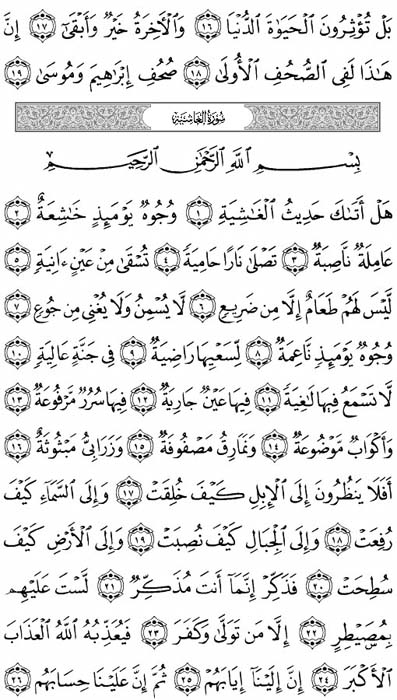 بَلۡ تُؤۡثِرُونَ ٱلۡحَيَوٰةَ ٱلدُّنۡيَا ١٦ وَٱلۡأٓخِرَةُ خَيۡرٞ وَأَبۡقَىٰٓ ١٧ إِنَّ
هَٰذَا لَفِي ٱلصُّحُفِ ٱلۡأُولَىٰ ١٨ صُحُفِ إِبۡرَٰهِيمَ وَمُوسَىٰ ١٩
سُورَةُ الغَاشِيَةِ
بِسۡمِ ٱللَّهِ ٱلرَّحۡمَٰنِ ٱلرَّحِيمِ
هَلۡ أَتَىٰكَ حَدِيثُ ٱلۡغَٰشِيَةِ ١ وُجُوهٞ يَوۡمَئِذٍ خَٰشِعَةٌ ٢
عَامِلَةٞ نَّاصِبَةٞ ٣ تَصۡلَىٰ نَارًا حَامِيَةٗ ٤ تُسۡقَىٰ مِنۡ عَيۡنٍ ءَانِيَةٖ ٥
لَّيۡسَ لَهُمۡ طَعَامٌ إِلَّا مِن ضَرِيعٖ ٦ لَّا يُسۡمِنُ وَلَا يُغۡنِي مِن جُوعٖ ٧
وُجُوهٞ يَوۡمَئِذٖ نَّاعِمَةٞ ٨ لِّسَعۡيِهَا رَاضِيَةٞ ٩ فِي جَنَّةٍ عَالِيَةٖ ١٠
لَّا تَسۡمَعُ فِيهَا لَٰغِيَةٗ ١١ فِيهَا عَيۡنٞ جَارِيَةٞ ١٢ فِيهَا سُرُرٞ مَّرۡفُوعَةٞ ١٣
وَأَكۡوَابٞ مَّوۡضُوعَةٞ ١٤ وَنَمَارِقُ مَصۡفُوفَةٞ ١٥ وَزَرَابِيُّ مَبۡثُوثَةٌ ١٦
أَفَلَا يَنظُرُونَ إِلَى ٱلۡإِبِلِ كَيۡفَ خُلِقَتۡ ١٧ وَإِلَى ٱلسَّمَآءِ كَيۡفَ
رُفِعَتۡ ١٨ وَإِلَى ٱلۡجِبَالِ كَيۡفَ نُصِبَتۡ ١٩ وَإِلَى ٱلۡأَرۡضِ كَيۡفَ
سُطِحَتۡ ٢٠ فَذَكِّرۡ إِنَّمَآ أَنتَ مُذَكِّرٞ ٢١ لَّسۡتَ عَلَيۡهِم
بِمُصَيۡطِرٍ ٢٢ إِلَّا مَن تَوَلَّىٰ وَكَفَرَ ٢٣ فَيُعَذِّبُهُ ٱللَّهُ ٱلۡعَذَابَ
ٱلۡأَكۡبَرَ ٢٤ إِنَّ إِلَيۡنَآ إِيَابَهُمۡ ٢٥ ثُمَّ إِنَّ عَلَيۡنَا حِسَابَهُم ٢٦